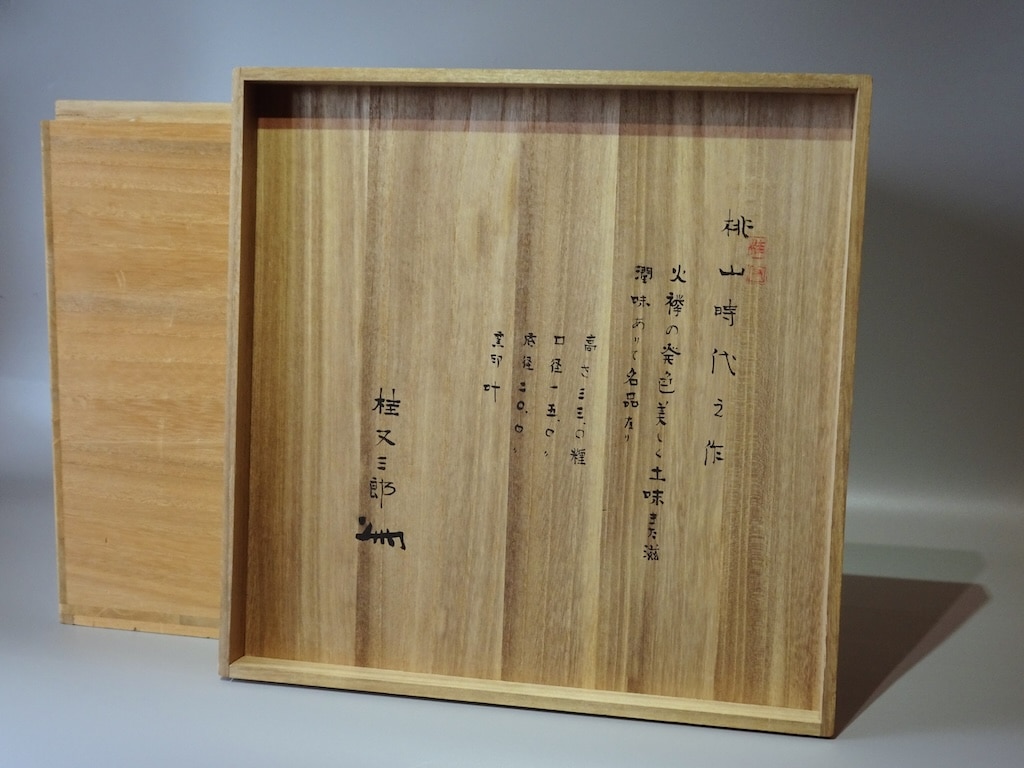 桃山時代之作
火襷の発色美しく土味また滋
潤味ありて名品なり
高さ三三.0糎
口径一五.0〃
底径二0.0〃
窯印 叶
桂又三郎